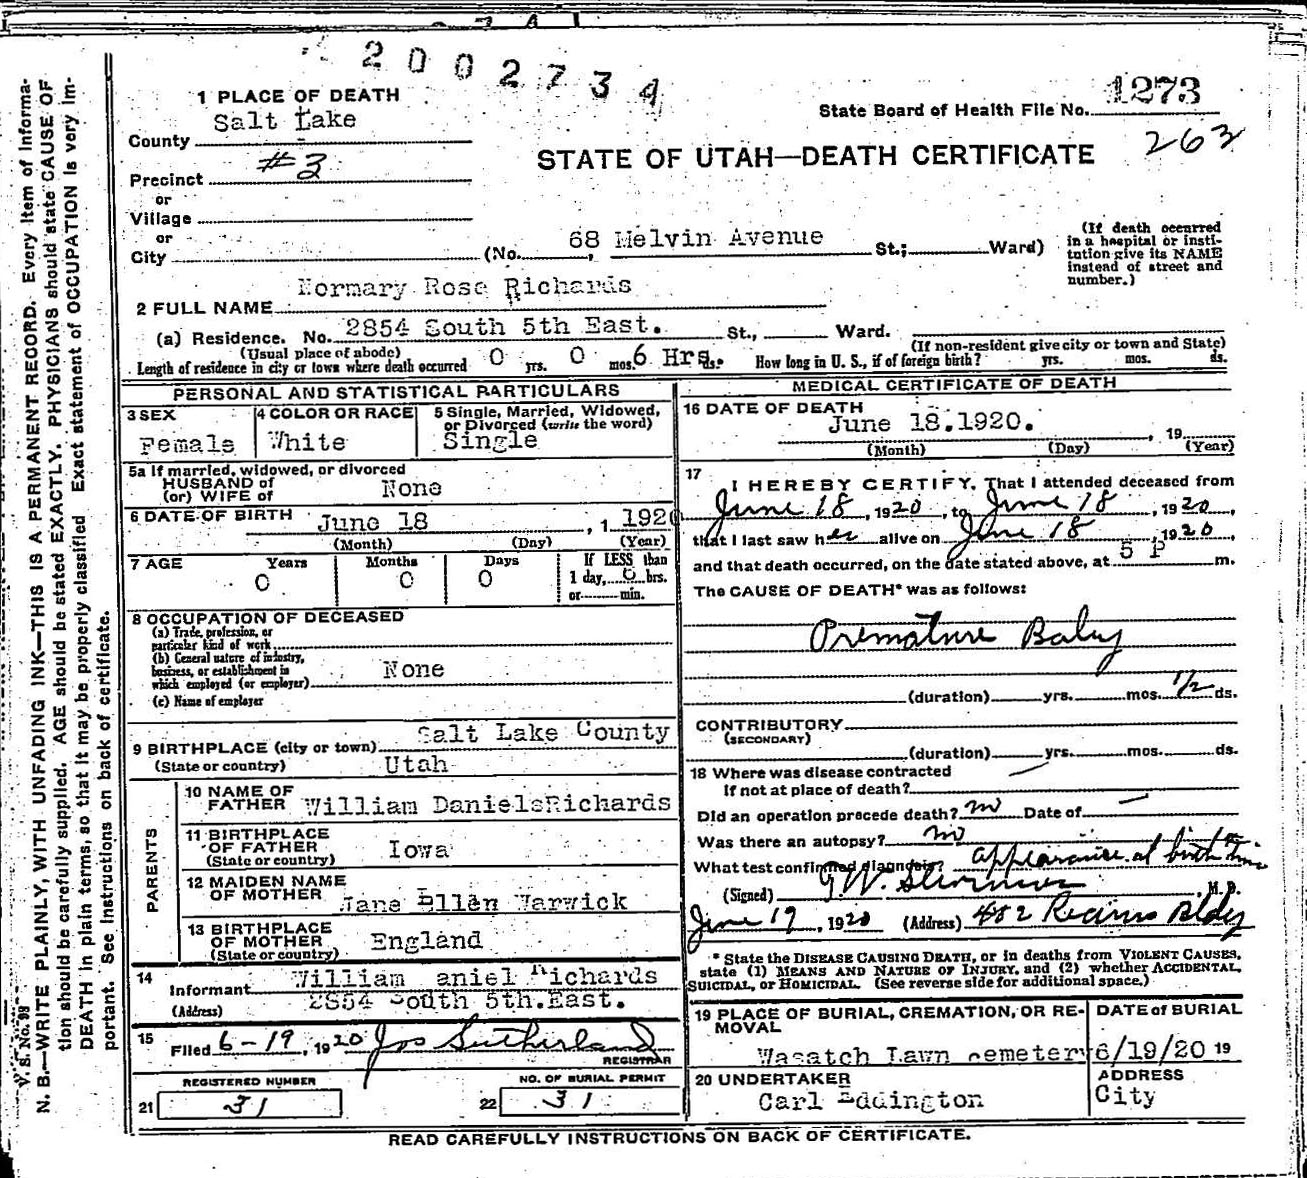 2002734
1 PLACE OF DEATH
State Board of Health File No. 1273
County Salt Lake
263
STATE OF UTAH—DEATH CERTIFICATE
Precinct #3
or
Village
or
City (No. 68 Melvin Avenue St.; Ward)
(If death occurred in a hospital or institution give its NAME instead of street and number.)
2 FULL NAME Normary Rose Richards
(a) Residence. No. 2854 South 5th East. St., Ward.
(Usual place of abode) (If non-resident give city or town and State)
Length of residence in city or town where death occurred 0 yrs. 0 mos. 6 Hrs. ds. How long in U. S., if of foreign birth? yrs. mos. ds.
PERSONAL AND STATISTICAL PARTICULARS
3 SEX Female
4 COLOR OR RACE White
5 Single, Married, Widowed, or Divorced (write the word) Single
5a If married, widowed, or divorced
HUSBAND of
(or) WIFE of None
6 DATE OF BIRTH June 18, 1 1920
(Month) (Day) (Year)
7 AGE Years 0 Months 0 Days 0 If LESS than
1 day, 6 hrs.
or min.
8 OCCUPATION OF DECEASED
(a) Trade, profession, or
particular kind of work
(b) General nature of industry,
business, or establishment in
which employed (or employer) None
(c) Name of employer
9 BIRTHPLACE (city or town) Salt Lake County
(State or country) Utah
PARENTS
10 NAME OF
FATHER William Daniels Richards
11 BIRTHPLACE
OF FATHER
(State or country) Iowa
12 MAIDEN NAME
OF MOTHER Jane Ellen Warwick
13 BIRTHPLACE
OF MOTHER
(State or country) England
14 Informant William aniel Richards
(Address) 2854 South 5th.East.
15 Filed 6-19, 1920 Jos Sutherland
REGISTRAR
REGISTERED NUMBER
21 31
NO. OF BURIAL PERMIT
22 31
MEDICAL CERTIFICATE OF DEATH
16 DATE OF DEATH June 18.1920. , 19
(Month) (Day) (Year)
17 I HEREBY CERTIFY, That I attended deceased from
June 18, 1920, to June 18, 1920,
that I last saw her alive on June 18, 1920,
and that death occurred, on the date stated above, at 5 P m.
The CAUSE OF DEATH* was as follows:
Premature Baby
(duration) yrs. mos. 1/2 ds.
CONTRIBUTORY
(SECONDARY)
(duration) yrs. mos. ds.
18 Where was disease contracted
If not at place of death? —
Did an operation precede death? no Date of —
Was there an autopsy? no
What test confirmed diagnosis? appearance at birth time
(Signed) G W , M.D.
June 19, 1920 (Address) 482 Bldg
* State the DISEASE CAUSING DEATH, or in deaths from VIOLENT CAUSES,
state (1) MEANS AND NATURE OF INJURY, and (2) whether ACCIDENTAL,
SUICIDAL, or HOMICIDAL. (See reverse side for additional space.)
19 PLACE OF BURIAL, CREMATION, OR REMOVAL
Wasatch Lawn cemetery
DATE of BURIAL
6/19/20 19
20 UNDERTAKER
Carl Eddington
ADDRESS
City
READ CAREFULLY INSTRUCTIONS ON BACK OF CERTIFICATE.
V. S. No. 98
N. B.—WRITE PLAINLY, WITH UNFADING INK—THIS IS A PERMANENT RECORD. Every item of information should be carefully supplied. AGE should be stated EXACTLY. PHYSICIANS should state CAUSE OF DEATH in plain terms, so that it may be properly classified Exact statement of OCCUPATION is very important. See instructions on back of certificate.